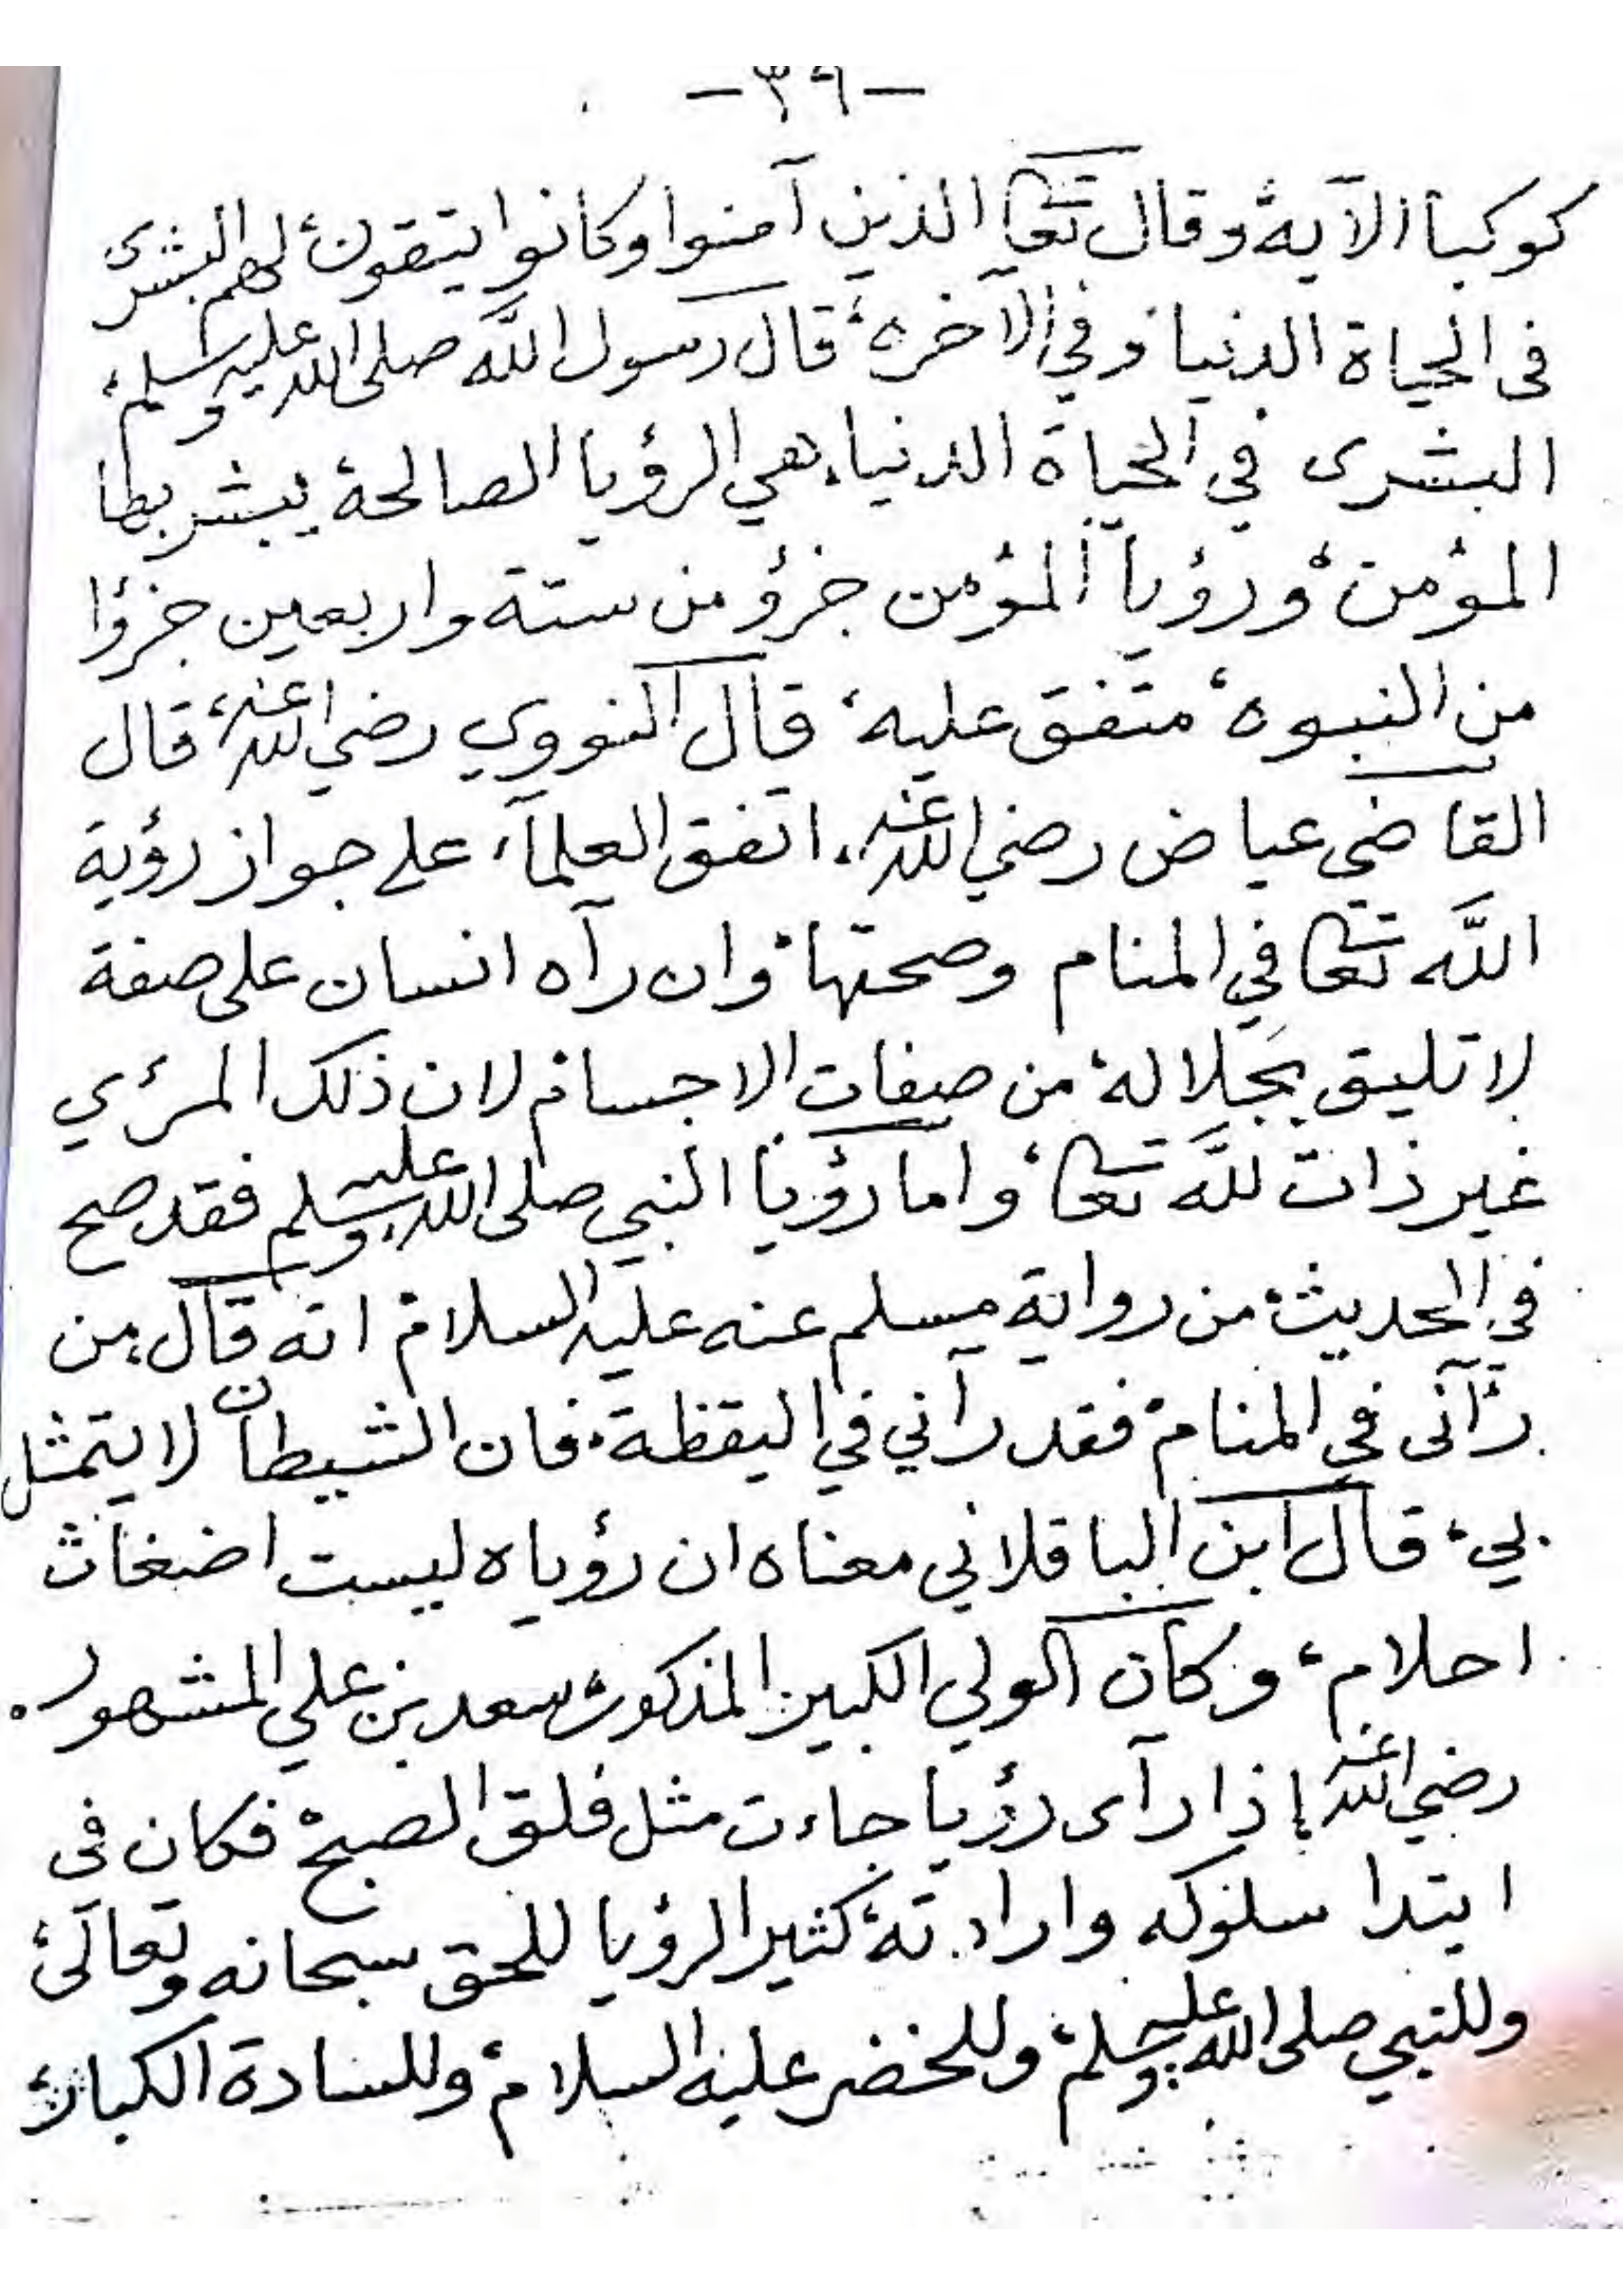 -٣٩-
كوكبا الآية وقال تعا الذين آمنوا وكانوا يتقون، لهم البشرى
فى الحياة الدنيا وفي الآخره، قال رسول الله صلى الله عليه وسلم،
البشرى في الحياة الدنيا، هي الرؤيا الصالحة يبشر بها
المؤمن، ورؤيا المؤمن جزؤ من ستة واربعين جزؤا
من النبوه، متفق عليه، قال النووي رضي الله عنه، قال
القاضي عياض رضي الله عنه، اتفق العلمآء على جواز رؤية
الله تعا في المنام وصحتها، وان رآه انسان على صفة
لا تليق بجلاله، من صفات الاجسام لان ذلك المرئي
غير ذات لله تعا، واما رؤيا النبي صلى الله عليه وسلم فقد صح
في الحديث، من رواية مسلم عنه عليه السلام انه قال، من
رآنى في المنام، فقد رآني في اليقظة، فان الشيطان لا يتمثل
بي، قال ابن الباقلاني معناه ان رؤياه ليست اضغاث
احلام، وكان الولي الكبير المذكور، سعد بن علي المشهور.
رضي الله عنه إذا رآى رؤيا جاءت مثل فلق الصبح، فكان فى
ابتدا سلوكه وارادته، كثير الرؤيا للحق سبحانه وتعالى،
وللنبي صلى الله عليه وسلم، وللخضر عليه السلام، وللسادة الكبار،